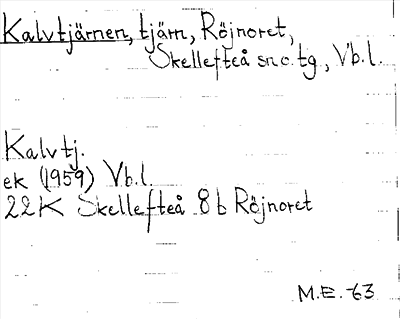 Kalvtjärnen, tjärn, Röjnoret,
Skellefteå sn o. tg, Vb. l.
Kalvtj.
ek (1959) Vb. l.
22K Skellefteå 8 b Röjnoret
M.E. -63